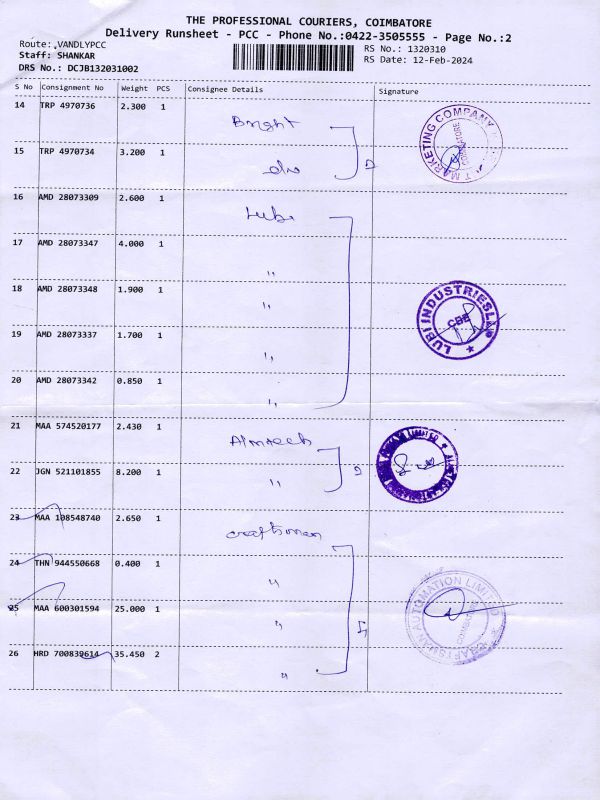 THE PROFESSIONAL COURIERS, COIMBATORE
Delivery Runsheet - PCC - Phone No.:0422-3505555 - Page No.:2
Route:,VANDLYPCC
RS No.: 1320310
Staff: SHANKAR
RS Date: 12-Feb-2024
DRS No.: DCJB132031002
S No Consignment No Weight PCS Consignee Details Signature
14 TRP 4970736 2.300 1 Bright
MARKETING COMPANY
COIMBATORE
15 TRP 4970734 3.200 1 do
16 AMD 28073309 2.600 1 Lubi
17 AMD 28073347 4.000 1 "
18 AMD 28073348 1.900 1 "
LUBI INDUSTRIES
CBE
19 AMD 28073337 1.700 1 "
20 AMD 28073342 0.850 1 "
21 MAA 574520177 2.430 1 Almtech
22 JGN 521101855 8.200 1 "
23 MAA 108548740 2.650 1 craftsman
24 THN 944550668 0.400 1 "
25 MAA 600301594 25.000 1 "
CRAFTSMAN AUTOMATION LIMITED
COIMBATORE
26 HRD 700839614 35.450 2 "